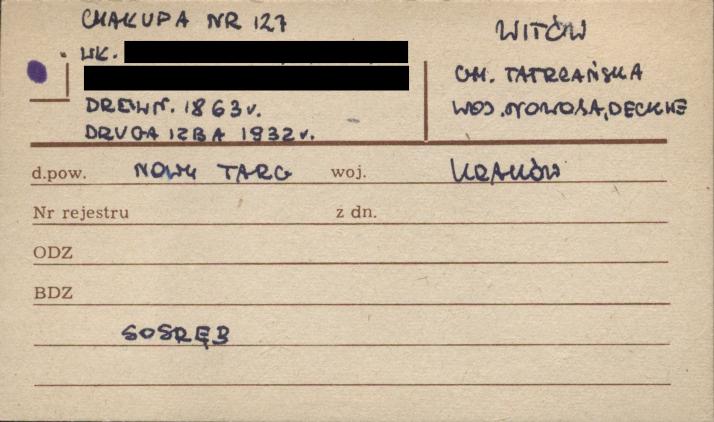 CHAŁUPA NR 127
WŁ.
DREWN. 1863 r.
DRUGA IZBA 1932 r.
WITÓW
GM. TATRZAŃSKA
WOJ. NOWOSĄDECKIE
d.pow. NOWY TARG woj. KRAKÓW
Nr rejestru z dn.
ODZ
BDZ
SOSRĘB